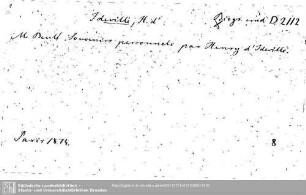 Ideville, H. d'
Biogr. erud. D 2112
M. Beulé. Souvenirs personnels par Henry d'Ideville.
Paris 1874.
8
Sächsische Landesbibliothek -
Staats- und Universitätsbibliothek Dresden